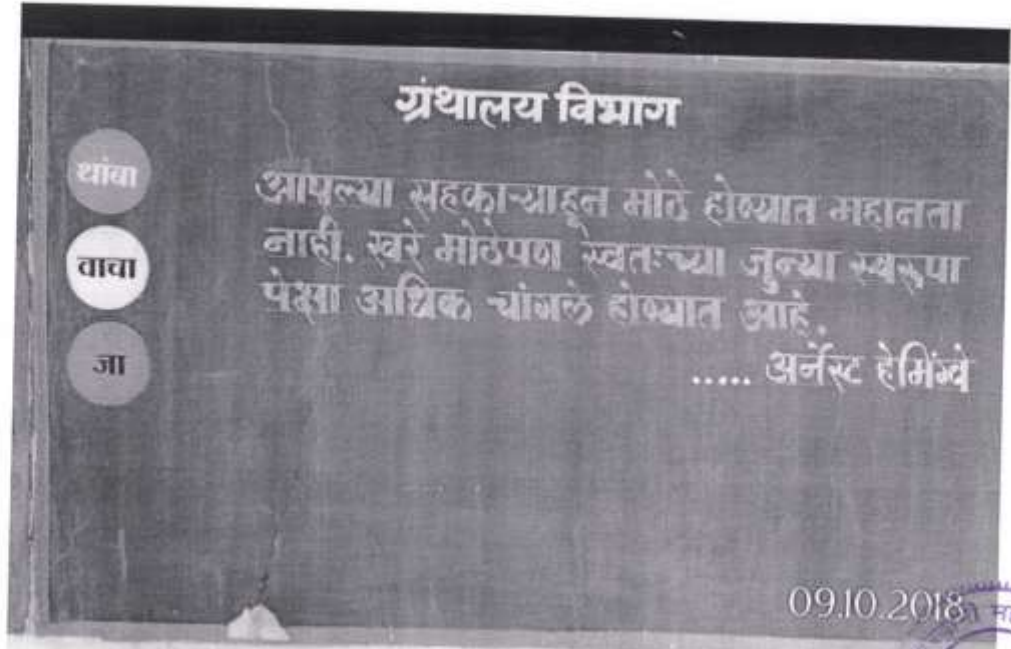 ग्रंथालय विभाग
थांबा
वाचा
जा
आपल्या सहकाऱ्याहून मोठे होण्यात महानता
नाही. खरे मोठेपण स्वतःच्या जुन्या स्वरूपा
पेक्षा अधिक चांगले होण्यात आहे.
..... अर्नेस्ट हेमिंग्वे
09.10.2018